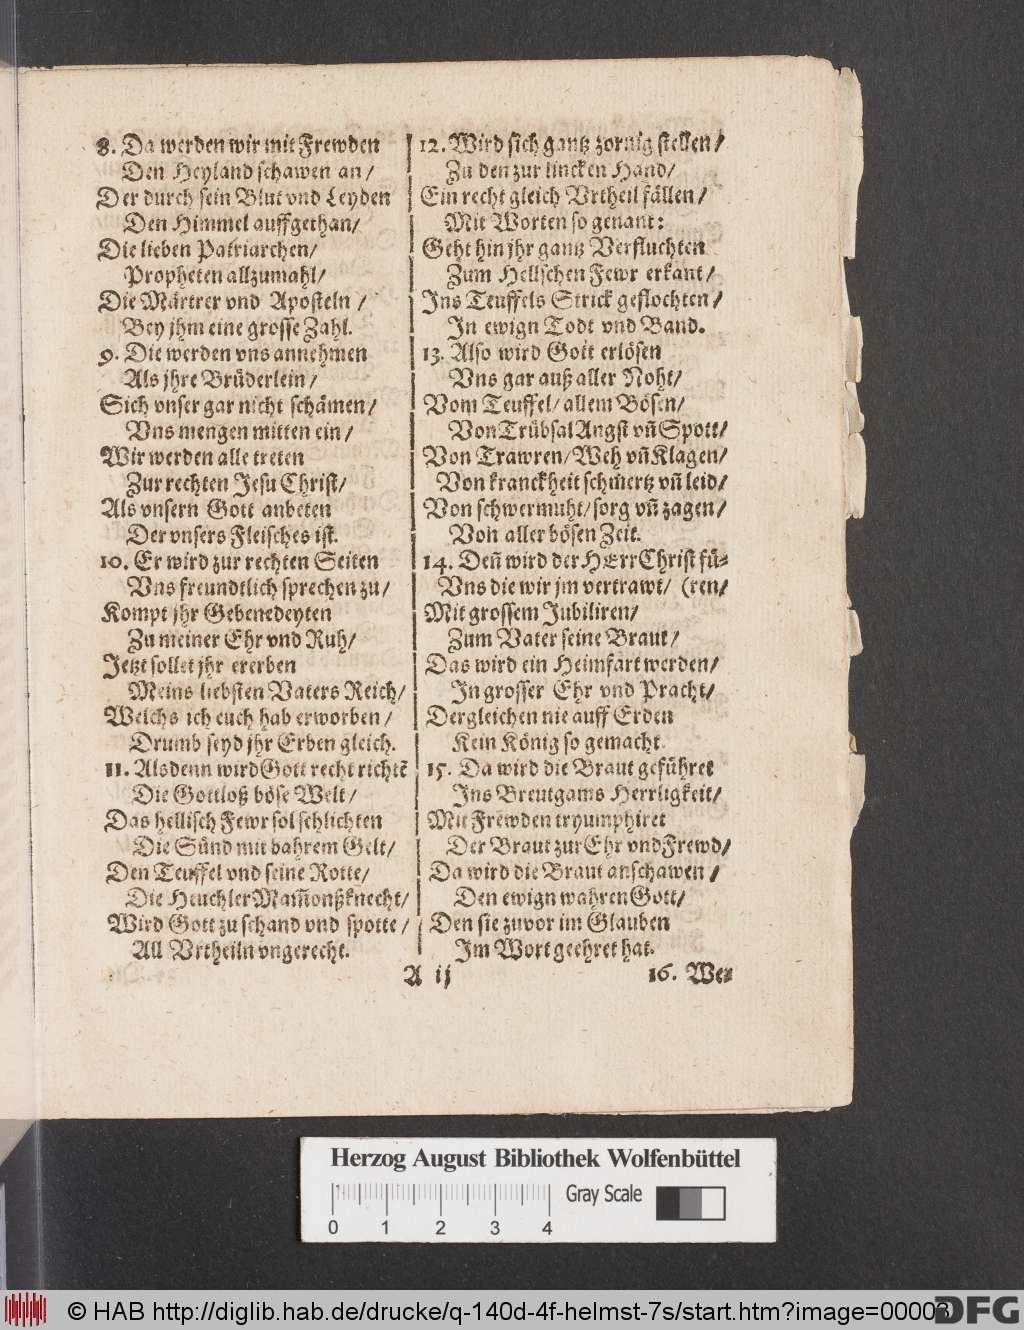 8. Da werden wir mit Frewden
Den Heyland schawen an /
Der durch sein Blut vnd Leyden
Den Himmel auffgethan/
Die lieben Patriarchen/
Propheten allzumahl/
Die Märtrer vnd Aposteln /
Bey jhm eine grosse Zahl.
9. Die werden vns annehmen
Als jhre Brüderlein /
Sich vnser gar nicht schämen/
Vns mengen mitten ein /
Wir werden alle treten
Zur rechten Jesu Christ/
Als vnsern Gott anbeten
Der vnsers Fleisches ist.
10. Er wird zur rechten Seiten
Vns freundtlich sprechen zu /
Kompt jhr Gebenedeyten
Zu meiner Ehr vnd Ruh/
Jetzt sollet jhr ererben
Meins liebsten Vaters Reich/
Welchs ich euch hab erworben /
Drumb seyd jhr Erben gleich.
11. Alsdenn wird Gott recht richtẽ
Die Gottloß böse Welt /
Das hellisch Fewr sol schlichten
Die Sünd mit bahrem Gelt/
Den Teuffel vnd seine Rotte/
Die Heuchler Mam̃onßknecht/
Wird Gott zu schand vnd spotte /
All Vrtheiln vngerecht.
12. Wird sich gantz zornig stellen /
Zu den zur lincken Hand/
Ein recht gleich Vrtheil fällen /
Mit Worten so genant:
Geht hin jhr gantz Verfluchten
Zum Hellschen Fewr erkant /
Ins Teuffels Strick geflochten /
In ewign Todt vnd Band.
13. Also wird Gott erlösen
Vns gar auß aller Noht/
Vom Teuffel/ allem Bösen/
Von Trübsal Angst vñ Spott/
Von Trawren/ Weh vñ Klagen/
Von kranckheit schmertz vñ leid/
Von schwermuht/ sorg vñ zagen/
Von aller bösen Zeit.
14. Deñ wird der HErr Christ fü-
Vns die wir jm vertrawt/ (ren/
Mit grossem Jubiliren/
Zum Vater seine Braut /
Das wird ein Heimfart werden/
In grosser Ehr vnd Pracht/
Dergleichen nie auff Erden
Kein König so gemacht.
15. Da wird die Braut geführet
Ins Breutgams Herrligkeit/
Mit Frewden tryumphiret
Der Braut zur Ehr vnd Frewd/
Da wird die Braut anschawen /
Den ewign wahren Gott/
Den sie zuvor im Glauben
Im Wort geehret hat.
A ij
16. We-
Herzog August Bibliothek Wolfenbüttel
Gray Scale
0 1 2 3 4
© HAB http://diglib.hab.de/drucke/q-140d-4f-helmst-7s/start.htm?image=00003
DFG